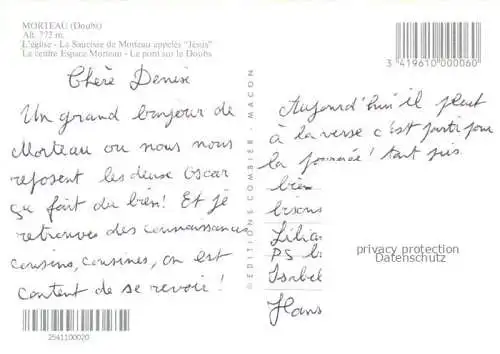 MORTEAU (Doubs)
Alt. 772 m.
L'église - La Saucisse de Morteau appelée "Jésus"
Le centre Espace Morteau - Le pont sur le Doubs
Chère Denise
Un grand bonjour de
Morteau où nous nous
reposent les deux Oscar
ça fait du bien! Et je
retrouves des connaissances
cousins, cousines, on est
content de se revoir!
2541100020
© EDITIONS COMBIER - MACON
3 419610 000060
Aujourd'hui il pleut
à la verse c'est parti pour
la journée! tant pis.
bien
bisous
Lilia
PS
Isabel
Hans
privacy protection
Datenschutz